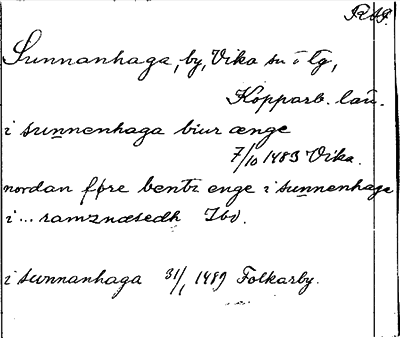 RAP.
Sunnanhaga, by, Vika sn o tg,
Kopparb. län.
i sunnenhaga biur ænge
7/10 1483 Vika.
nordan føre bentz enge i sunnenhage
i ... ramznæsedh Ibd.
i sunnanhaga 31/1 1489 Folkarby.